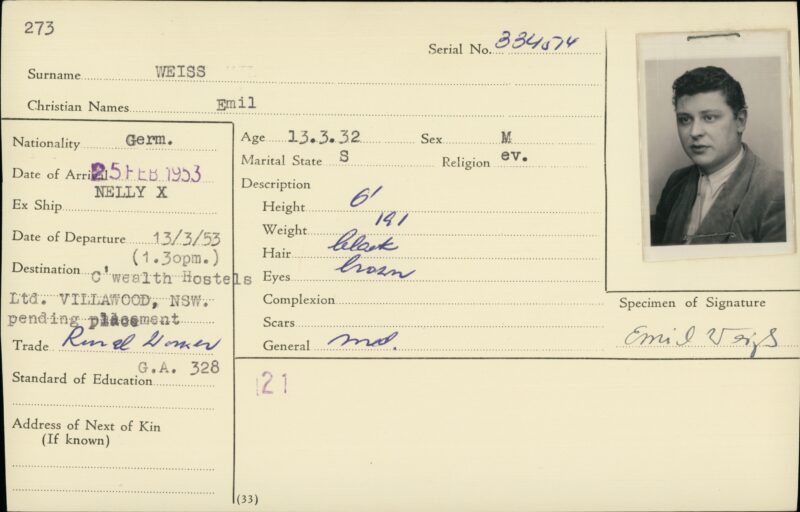 273
Serial No. 334574
Surname WEISS
Christian Names Emil
Nationality Germ.
Date of Arrival 25 FEB 1953
NELLY X
Ex Ship
Date of Departure 13/3/53
(1.30pm.)
Destination C'wealth Hostels
Ltd. VILLAWOOD, NSW.
pending placement
Trade Rural Worker
G.A. 328
Standard of Education
Address of Next of Kin
(If known)
Age 13.3.32 Sex M
Marital State S Religion ev.
Description
Height 6'
Weight 191
Hair black
Eyes brown
Complexion
Scars
General md.
21
(33)
Specimen of Signature
Emil Weiß